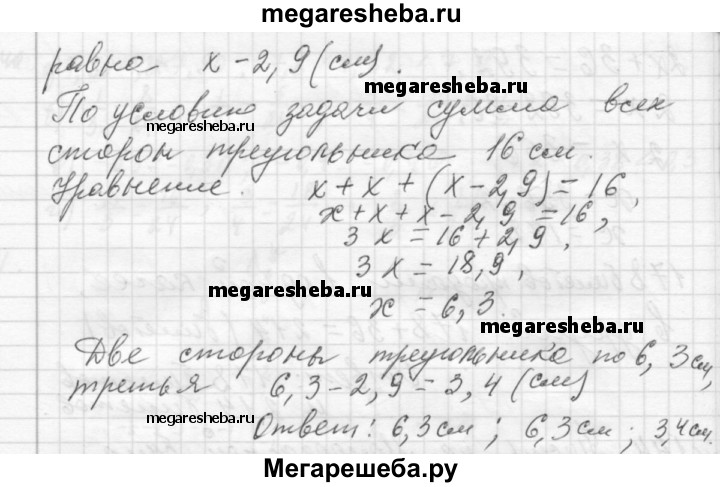 megaresheba.ru
равна x - 2,9 (см).
megaresheba.ru
По условию задачи сумма всех
megaresheba.ru
сторон треугольника 16 см.
Уравнение. x + x + (x - 2,9) = 16,
x + x + x - 2,9 = 16,
3x = 16 + 2,9,
3x = 18,9,
megaresheba.ru
x = 6,3.
megaresheba.ru
Две стороны треугольника по 6,3 см,
третья 6,3 - 2,9 = 3,4 (см)
megaresheba.ru
Ответ: 6,3 см; 6,3 см; 3,4 см.
Мегарешеба.ру